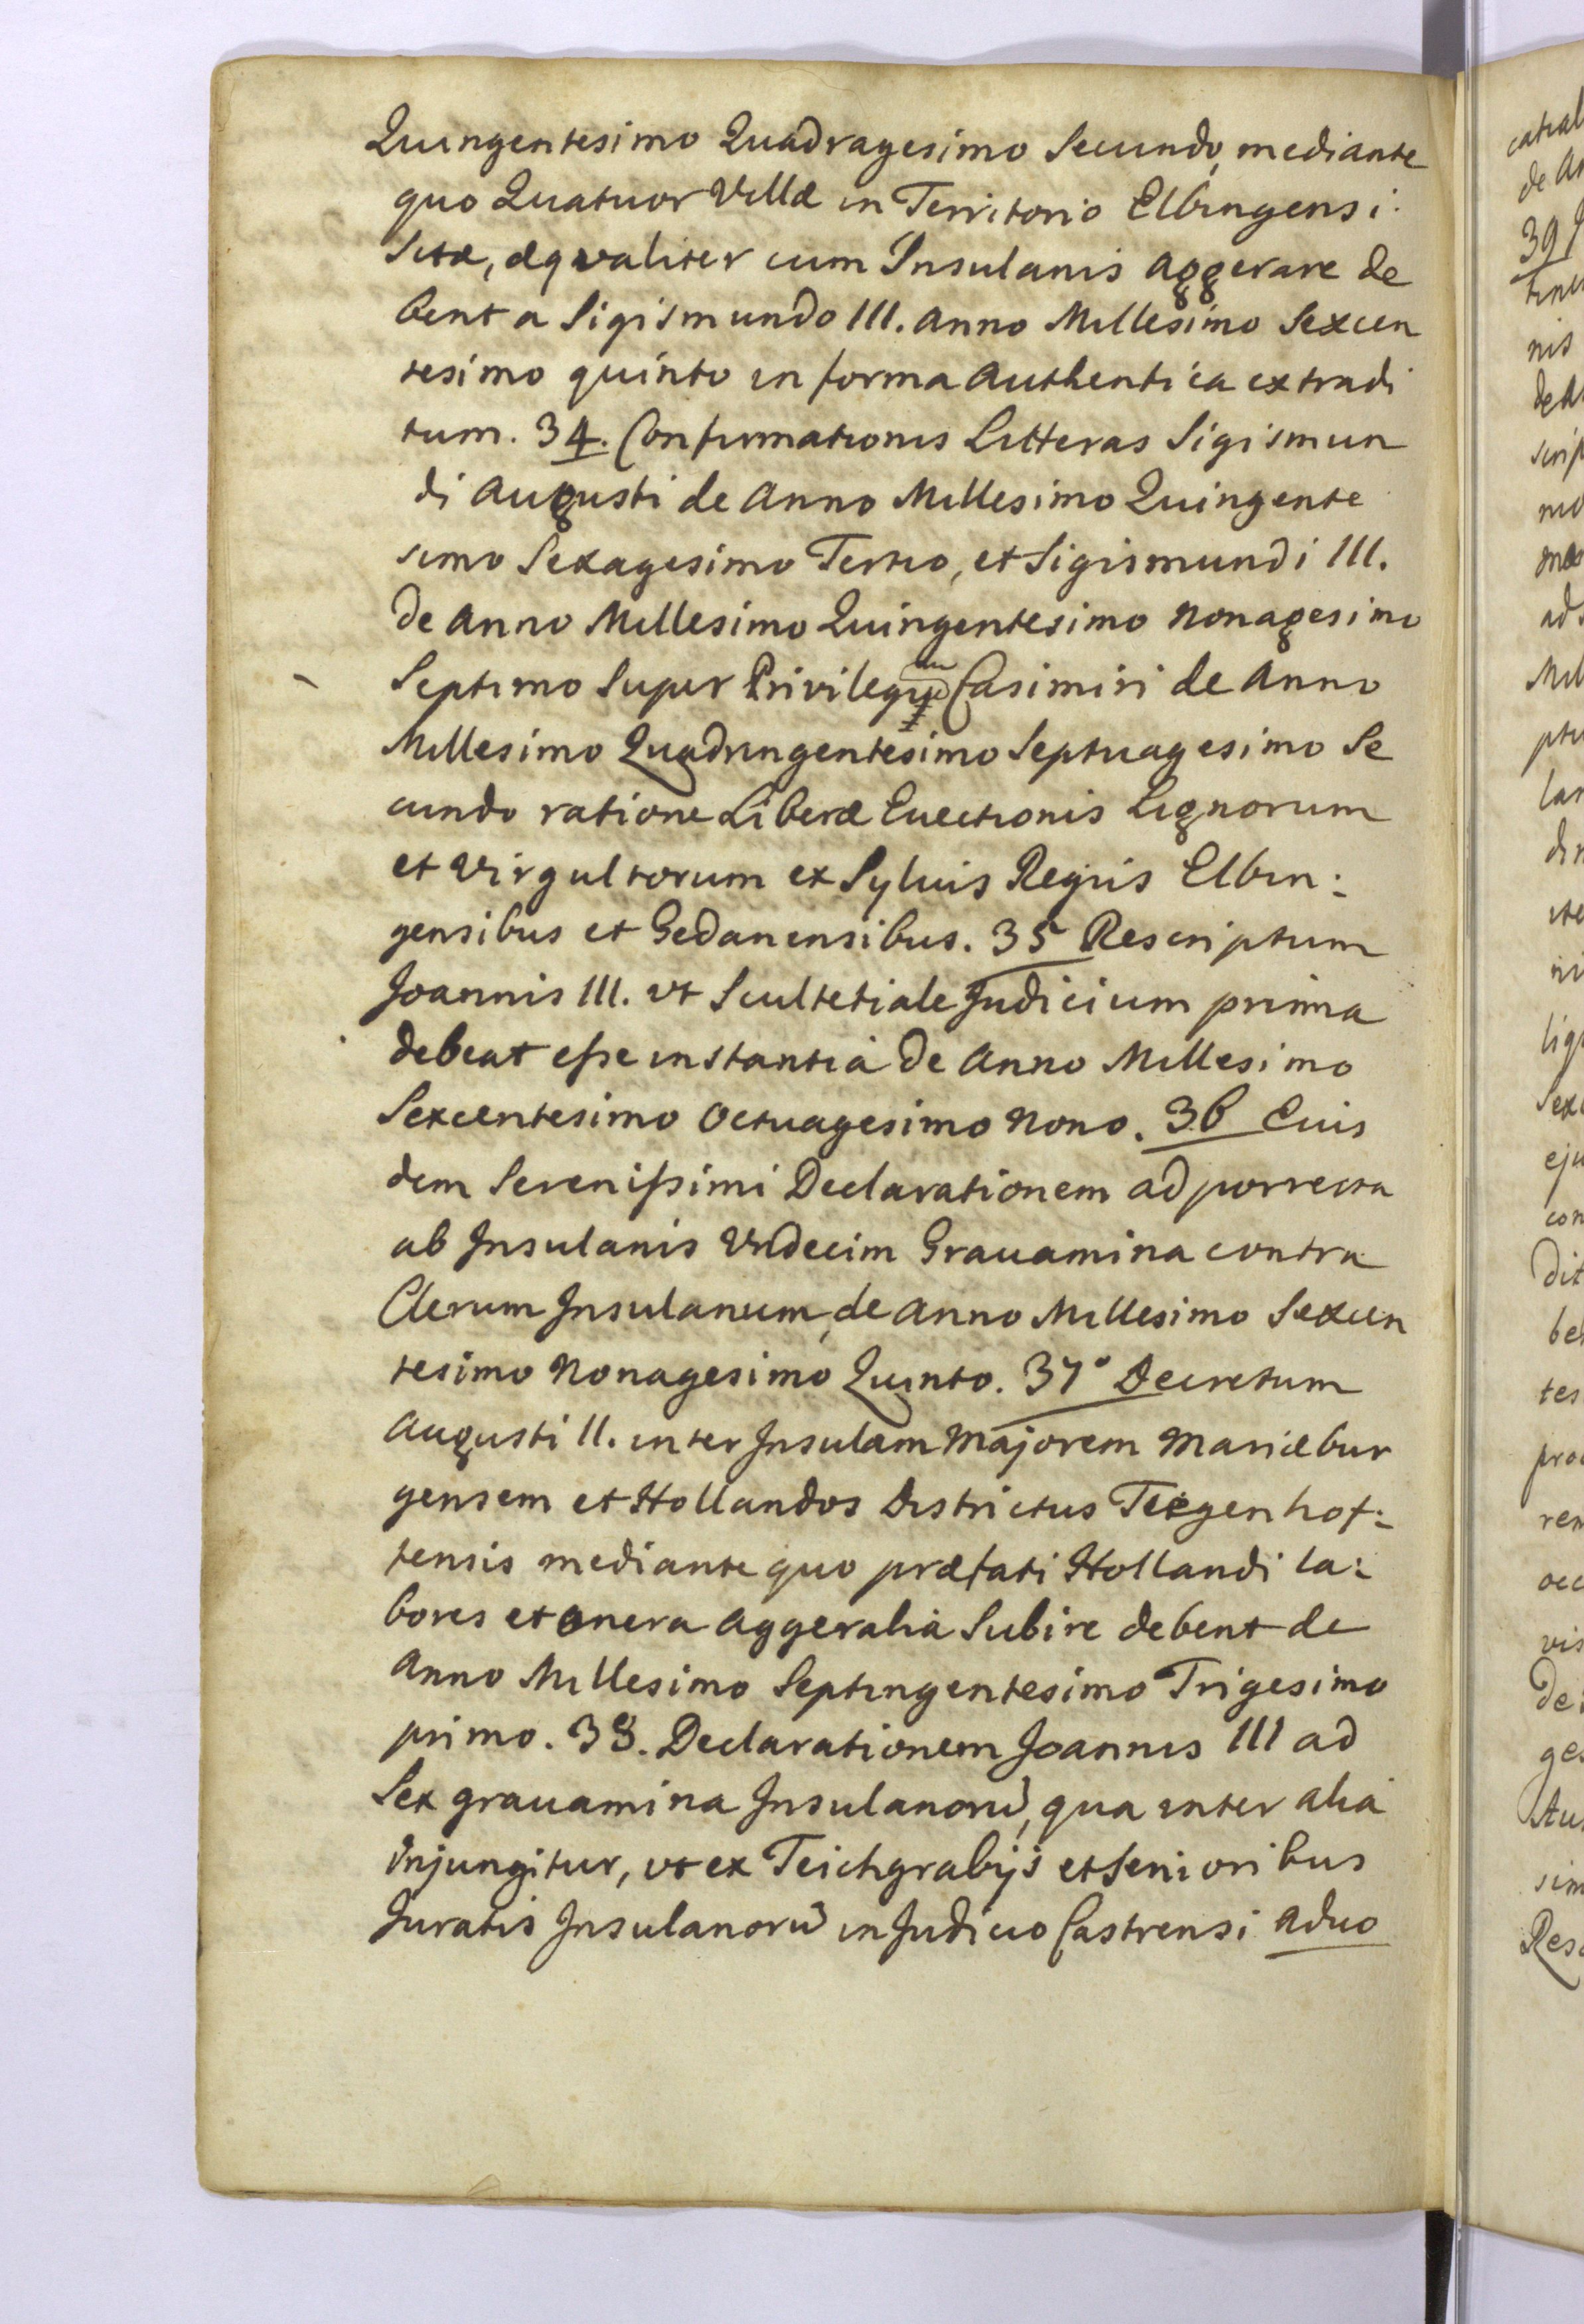 Quingentesimo Quadragesimo Secundo, mediante
quo Quatuor Villæ in Territorio Elbingensi.
Sitæ, æqvaliter cum Insulanis aggerare de
bent a Sigismundo III. Anno Millesimo Sexcen
tesimo quinto in forma Authentica extradi
tum. 34. Confirmationis Litteras Sigismun
di Augusti de Anno Millesimo Quingente
simo Sexagesimo Tertio, et Sigismundi III.
de Anno Millesimo Quingentesimo Nonagesimo
Septimo Super Casimiri de Anno
Millesimo Quadringentesimo Septuagesimo Se
cundo ratione Liberæ Euectionis Lignorum
et Virgultorum ex Syluis Regiis Elbin:
gensibus et Gedanensibus. 35 Rescriptum
Joannis III. vt Scultetiale Judicium prima
debeat esse instantia de Anno Millesimo
Sexcentesimo Octuagesimo Nono. 36 Eius
dem Serenissimi Declarationem ad porrecta
ab Insulanis Vndecim Grauamina contra
Clerum Insulanum, de Anno Millesimo Sexcen
tesimo Nonagesimo Quinto. 37° Decretum
Augusti II. inter Insulam Majorem Mariæbur
gensem et Hollandos Districtus Tiegenhof:
fensis mediante quo præfati Hollandi la:
bores et onera aggeralia Subire debent de
Anno Millesimo Septingentesimo Trigesimo
primo. 38. Declarationem Joannis III ad
Sex grauamina Insulanorū, qua inter alia
injungitur, vt ex Teichgrabijs et Senioribus
Juratis Insulanorū in Judicio Castrensi aduo
catial
de An
39
nis
de A
scrip
ad
Mil
lar
con
dit
tes
vis
de
ges
sim
Res